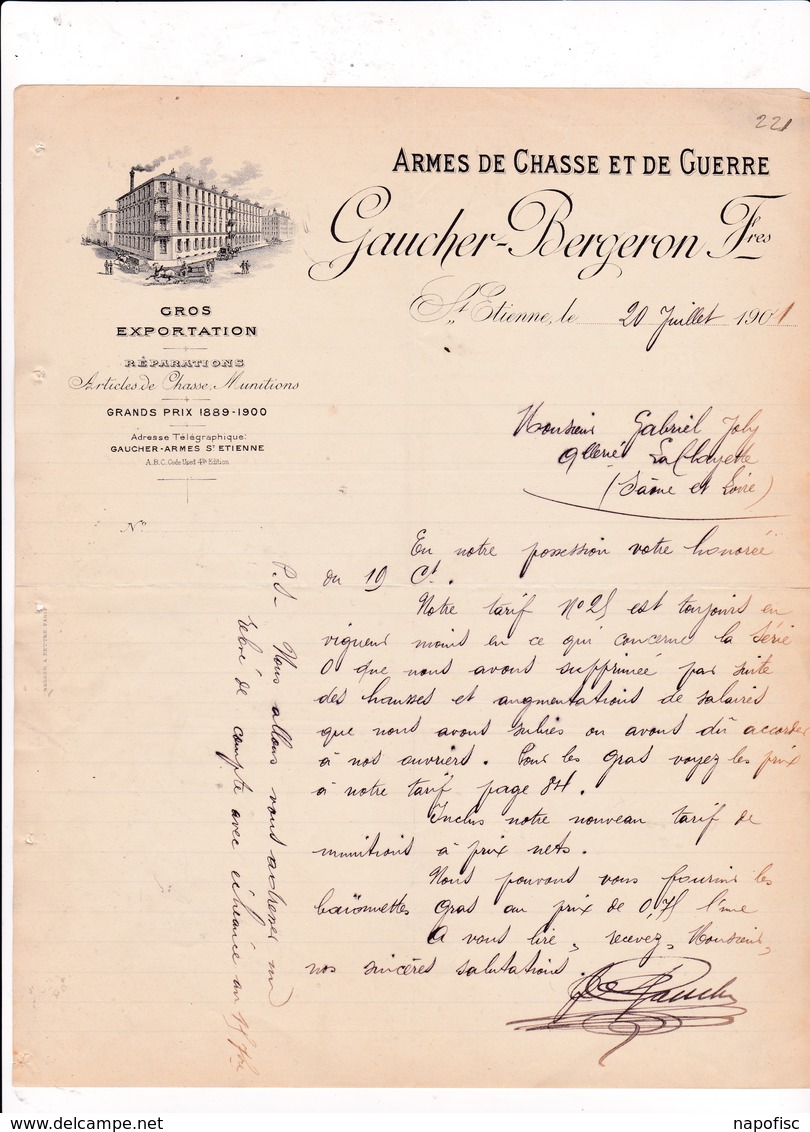 221
ARMES DE CHASSE ET DE GUERRE
Gaucher-Bergeron Fres
St Etienne, le 20 Juillet 1901
GROS
EXPORTATION
RÉPARATIONS
Articles de Chasse, Munitions
GRANDS PRIX 1889-1900
Adresse Télégraphique:
GAUCHER-ARMES ST ETIENNE
A.B.C. Code Used 4th Edition
No
Monsieur Gabriel Joly
(Saône et Loire)
En notre possession votre honorée
du 19 Ct.
Notre tarif No 25 est toujours en
vigueur moins en ce qui concerne la série
O que nous avons supprimée par suite
des hausses et augmentations de salaires
que nous avons subies ou avons dû accorder
à nos ouvriers. Pour les Gras voyez les prix
à notre tarif page 84.
Inclus notre nouveau tarif de
munitions à prix nets.
Nous pouvons vous fournir les
baïonnettes Gras au prix de 0,75 l'une
A vous lire, recevez, Monsieur,
nos sincères salutations
P.S- Nous allons vous adresser un
relevé de compte avec échéance au 15
napofisc